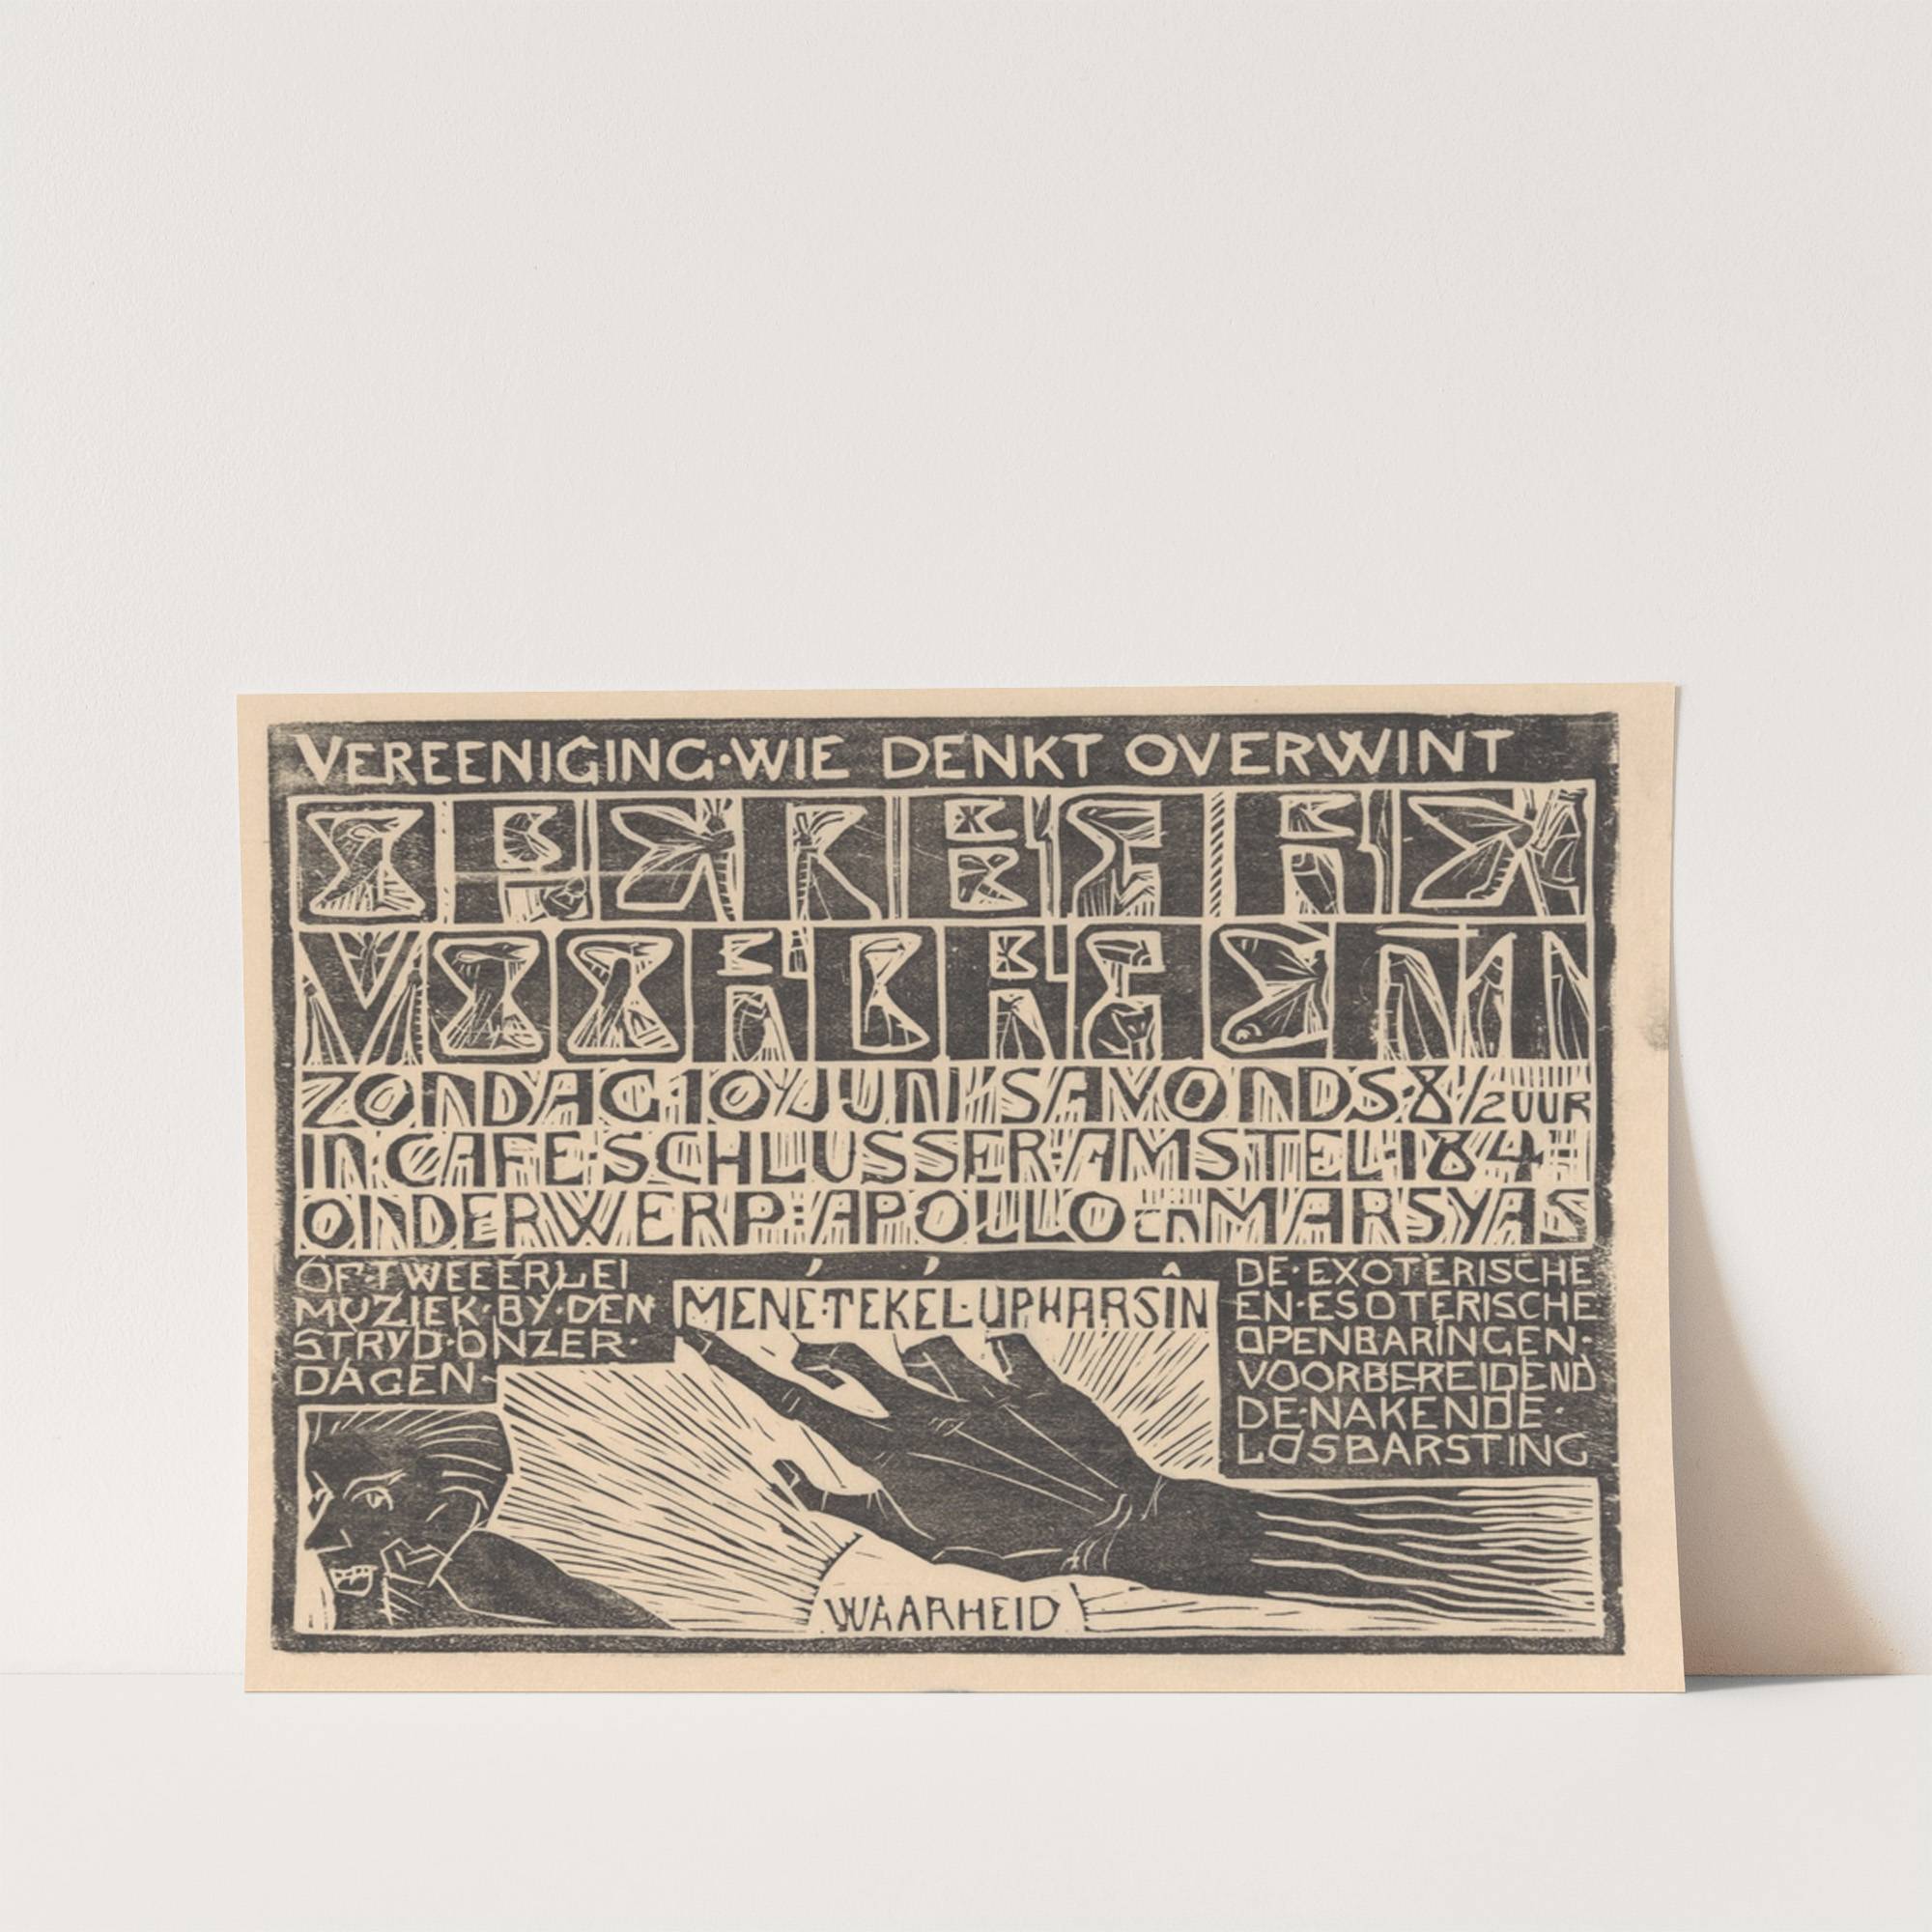 VEREENIGING·WIE DENKT OVERWINT
OPENBARE
VOORDRACHT
ZONDAG 10 JUNI 'S AVONDS 8 1/2 UUR
IN CAFE SCHLUSSER AMSTEL 184
ONDERWERP: APOLLO en MARSYAS
OF·TWEEËRLEI
MUZIEK·BY·DEN
STRYD·ONZER·
DAGEN·
MENÉ·TEKEL·UPHARSÎN
DE·EXOTERISCHE
EN·ESOTERISCHE
OPENBARINGEN·
VOORBEREIDEND
DE·NAKENDE·
LOSBARSTING
WAARHEID